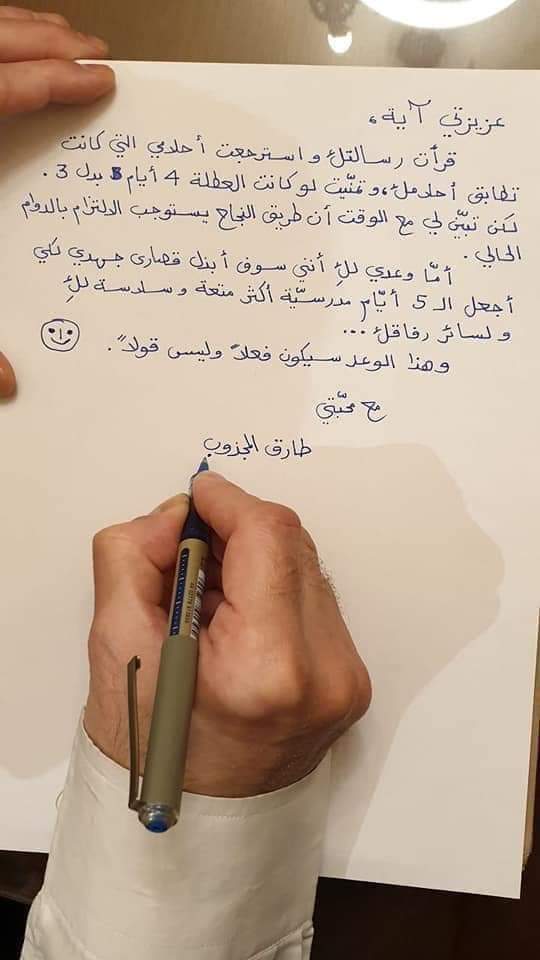 عزيزتي آية،
قرأت رسالتك واسترجعت أحلامي التي كانت
تطابق أحلامك، وتمنّيت لو كانت العطلة 4 أيام بدل 3.
لكن تبيّن لي مع الوقت أن طريق النجاح يستوجب الالتزام بالدوام
الحالي.
أمّا وعدي لكِ أنني سوف أبذل قصارى جهدي لكي
أجعل الـ 5 أيّام مدرسيّة أكثر متعة وسلاسة لكِ
ولسائر رفاقك...
وهذا الوعد سيكون فعلاً وليس قولاً.
مع محبّتي
طارق المجذوب